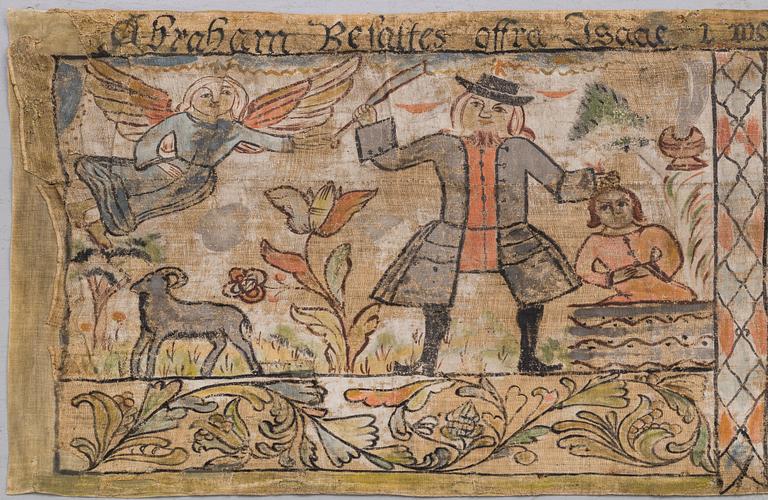 Abraham Befaltes offra Isaac i mo